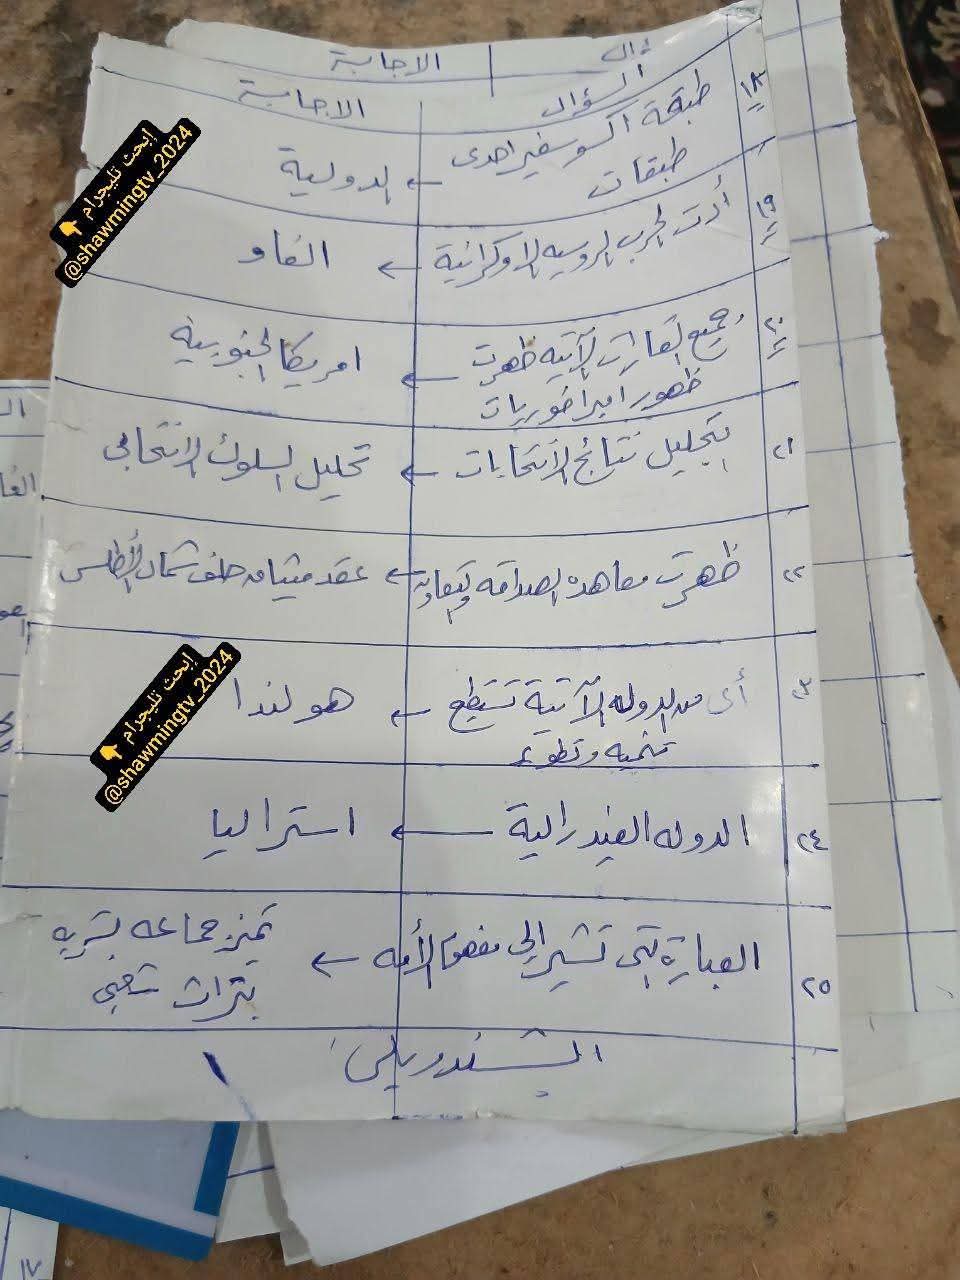 ؤال
الاجابة
السؤال
الاجابة
١٨
طبقة اكسوسفير احدى
طبقات
← الدولية
١٩
أدت الحرب الروسيه الاوكرانية
← الفاو
٢٠
جميع القارات الآتيه ظهرت
ظهور امبراطوريات
← امريكا الجنوبية
٢١
بتحليل نتائج الأنتخابات
← تحليل السلوك الانتخابى
٢٢
ظهرت معاهده الصداقه والتعاون
← عقد ميثاق حلف شمال الأطلسى
٢٣
أى من الدوله الآتية تستطيع
تنميه وتطوير
← هولندا
٢٤
الدوله الفيدرالية
← استراليا
٢٥
العبارة التى تشير الى مفهوم الأمه
← تميز جماعه بشريه
بتراث شعبى
الشندويلى
إبحث تليجرام 👇
@shawmingtv_2024
إبحث تليجرام 👇
@shawmingtv_2024
ال
الفا
١٧